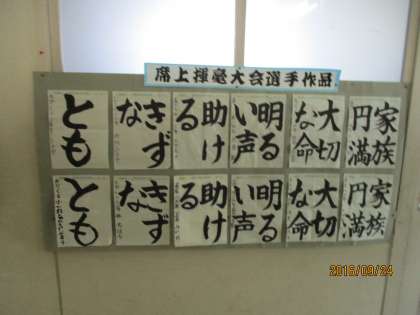 席上揮毫大会選手作品
とも
きずな
助ける
明るい声
大切な命
家族円満
とも
きずな
助ける
明るい声
大切な命
家族円満
2016/09/24